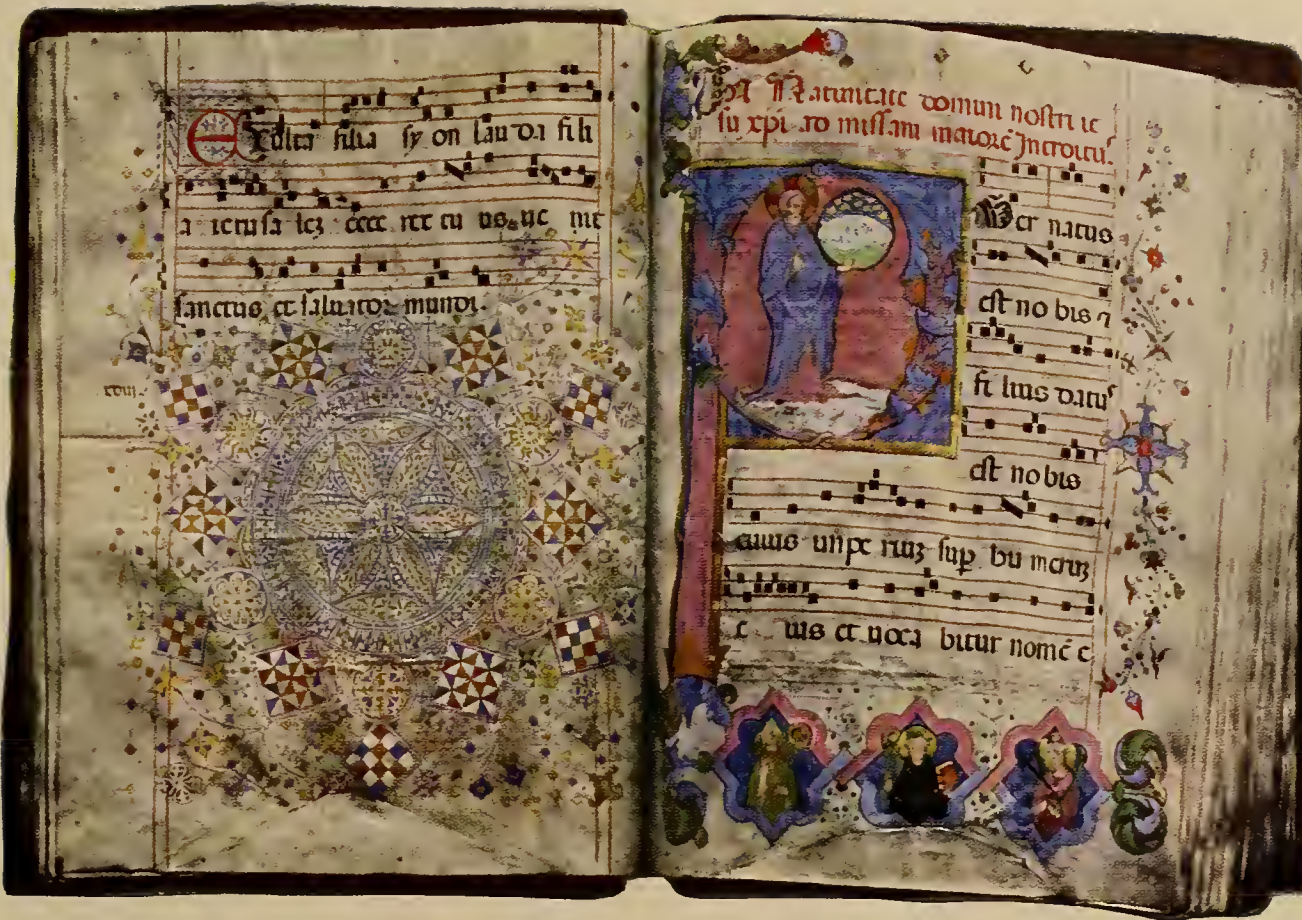 Exulta filia sy on lau da fili
a ieru sa lez ecce rex tu us ue nit
sanctus et saluator mundi.
xviij.
In Natiuitate domini nostri ie
su xpi ad missam maiorē Introitus.
Puer natus
est no bis ⁊
fi lius datus
est no bis
cuius impe riuz sup̱ hu meruz
e ius et uoca bitur nomē e